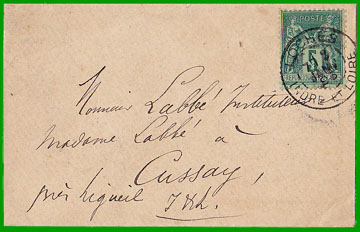 POSTE
LOCHES
INDRE ET LOIRE
Monsieur Labbé Instituteur
Madame Labbé à
Cussay,
près Ligueil I & L.